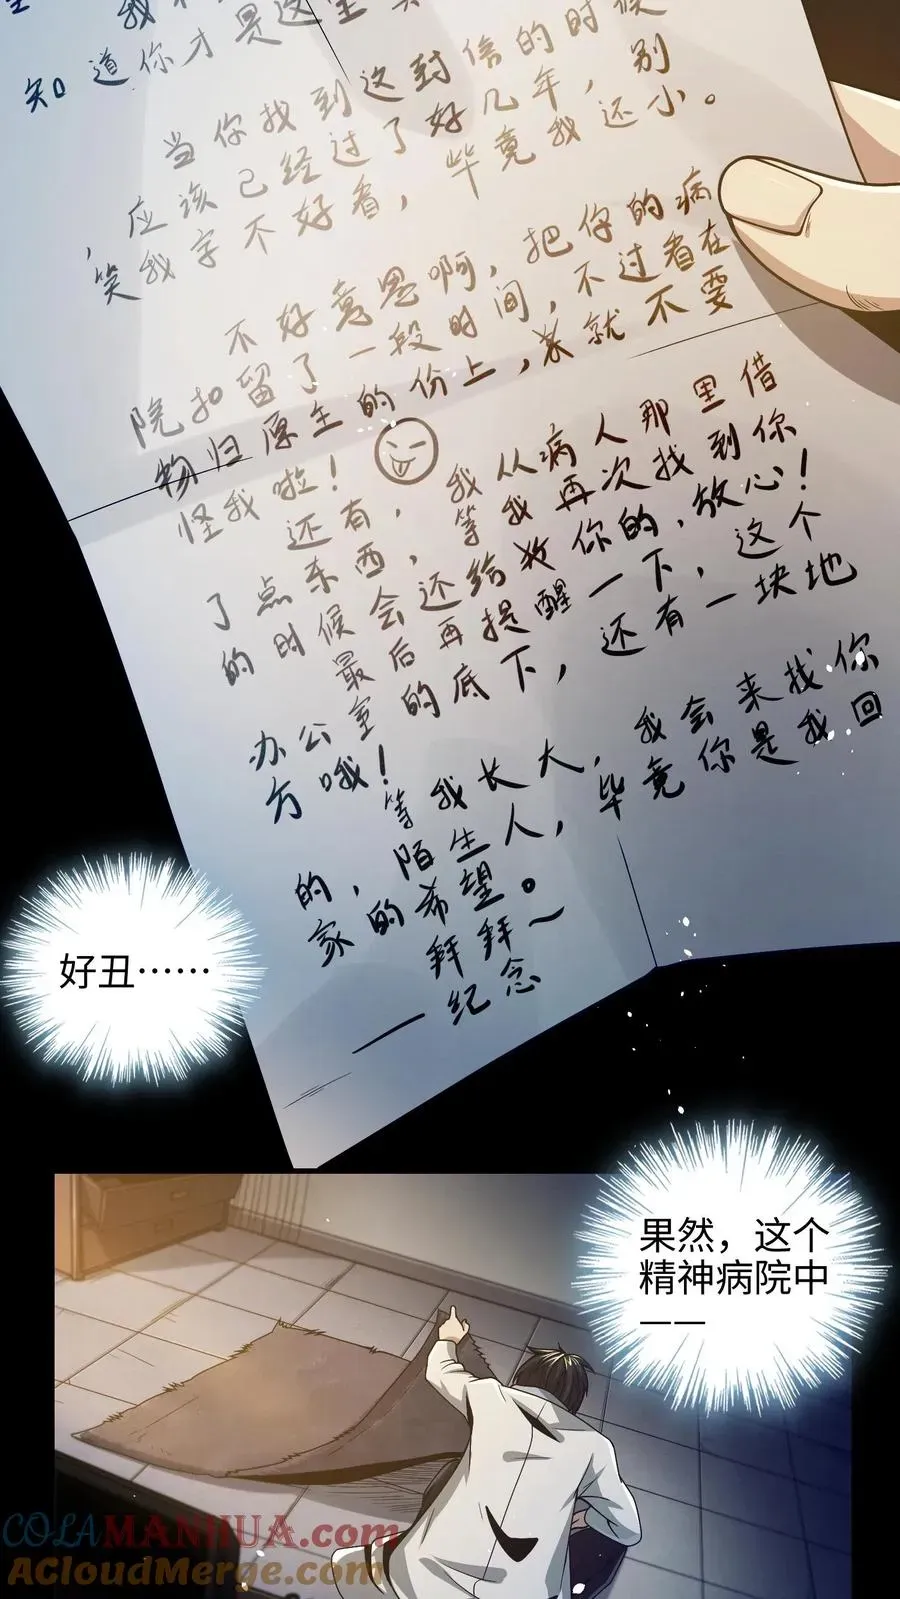 知道你才是这里
当你找到这封信的时候
，应该已经过了好几年，别
笑我字不好看，毕竟我还小。
不好意思啊，把你的病
院扣留了一段时间，不过看在
物归原主的份上，就不要
怪我啦！
还有，我从病人那里借
了点东西，等我再次找到你
的时候会还给你的，放心！
最后再提醒一下，这个
办公室的底下，还有一块地
方哦！
等我长大，我会来找你
的，陌生人，毕竟你是我回
家的希望。
拜拜~
——纪念
好丑……
果然，这个
精神病院中
——
COLAMANHUA.com
AcloudMerge.com